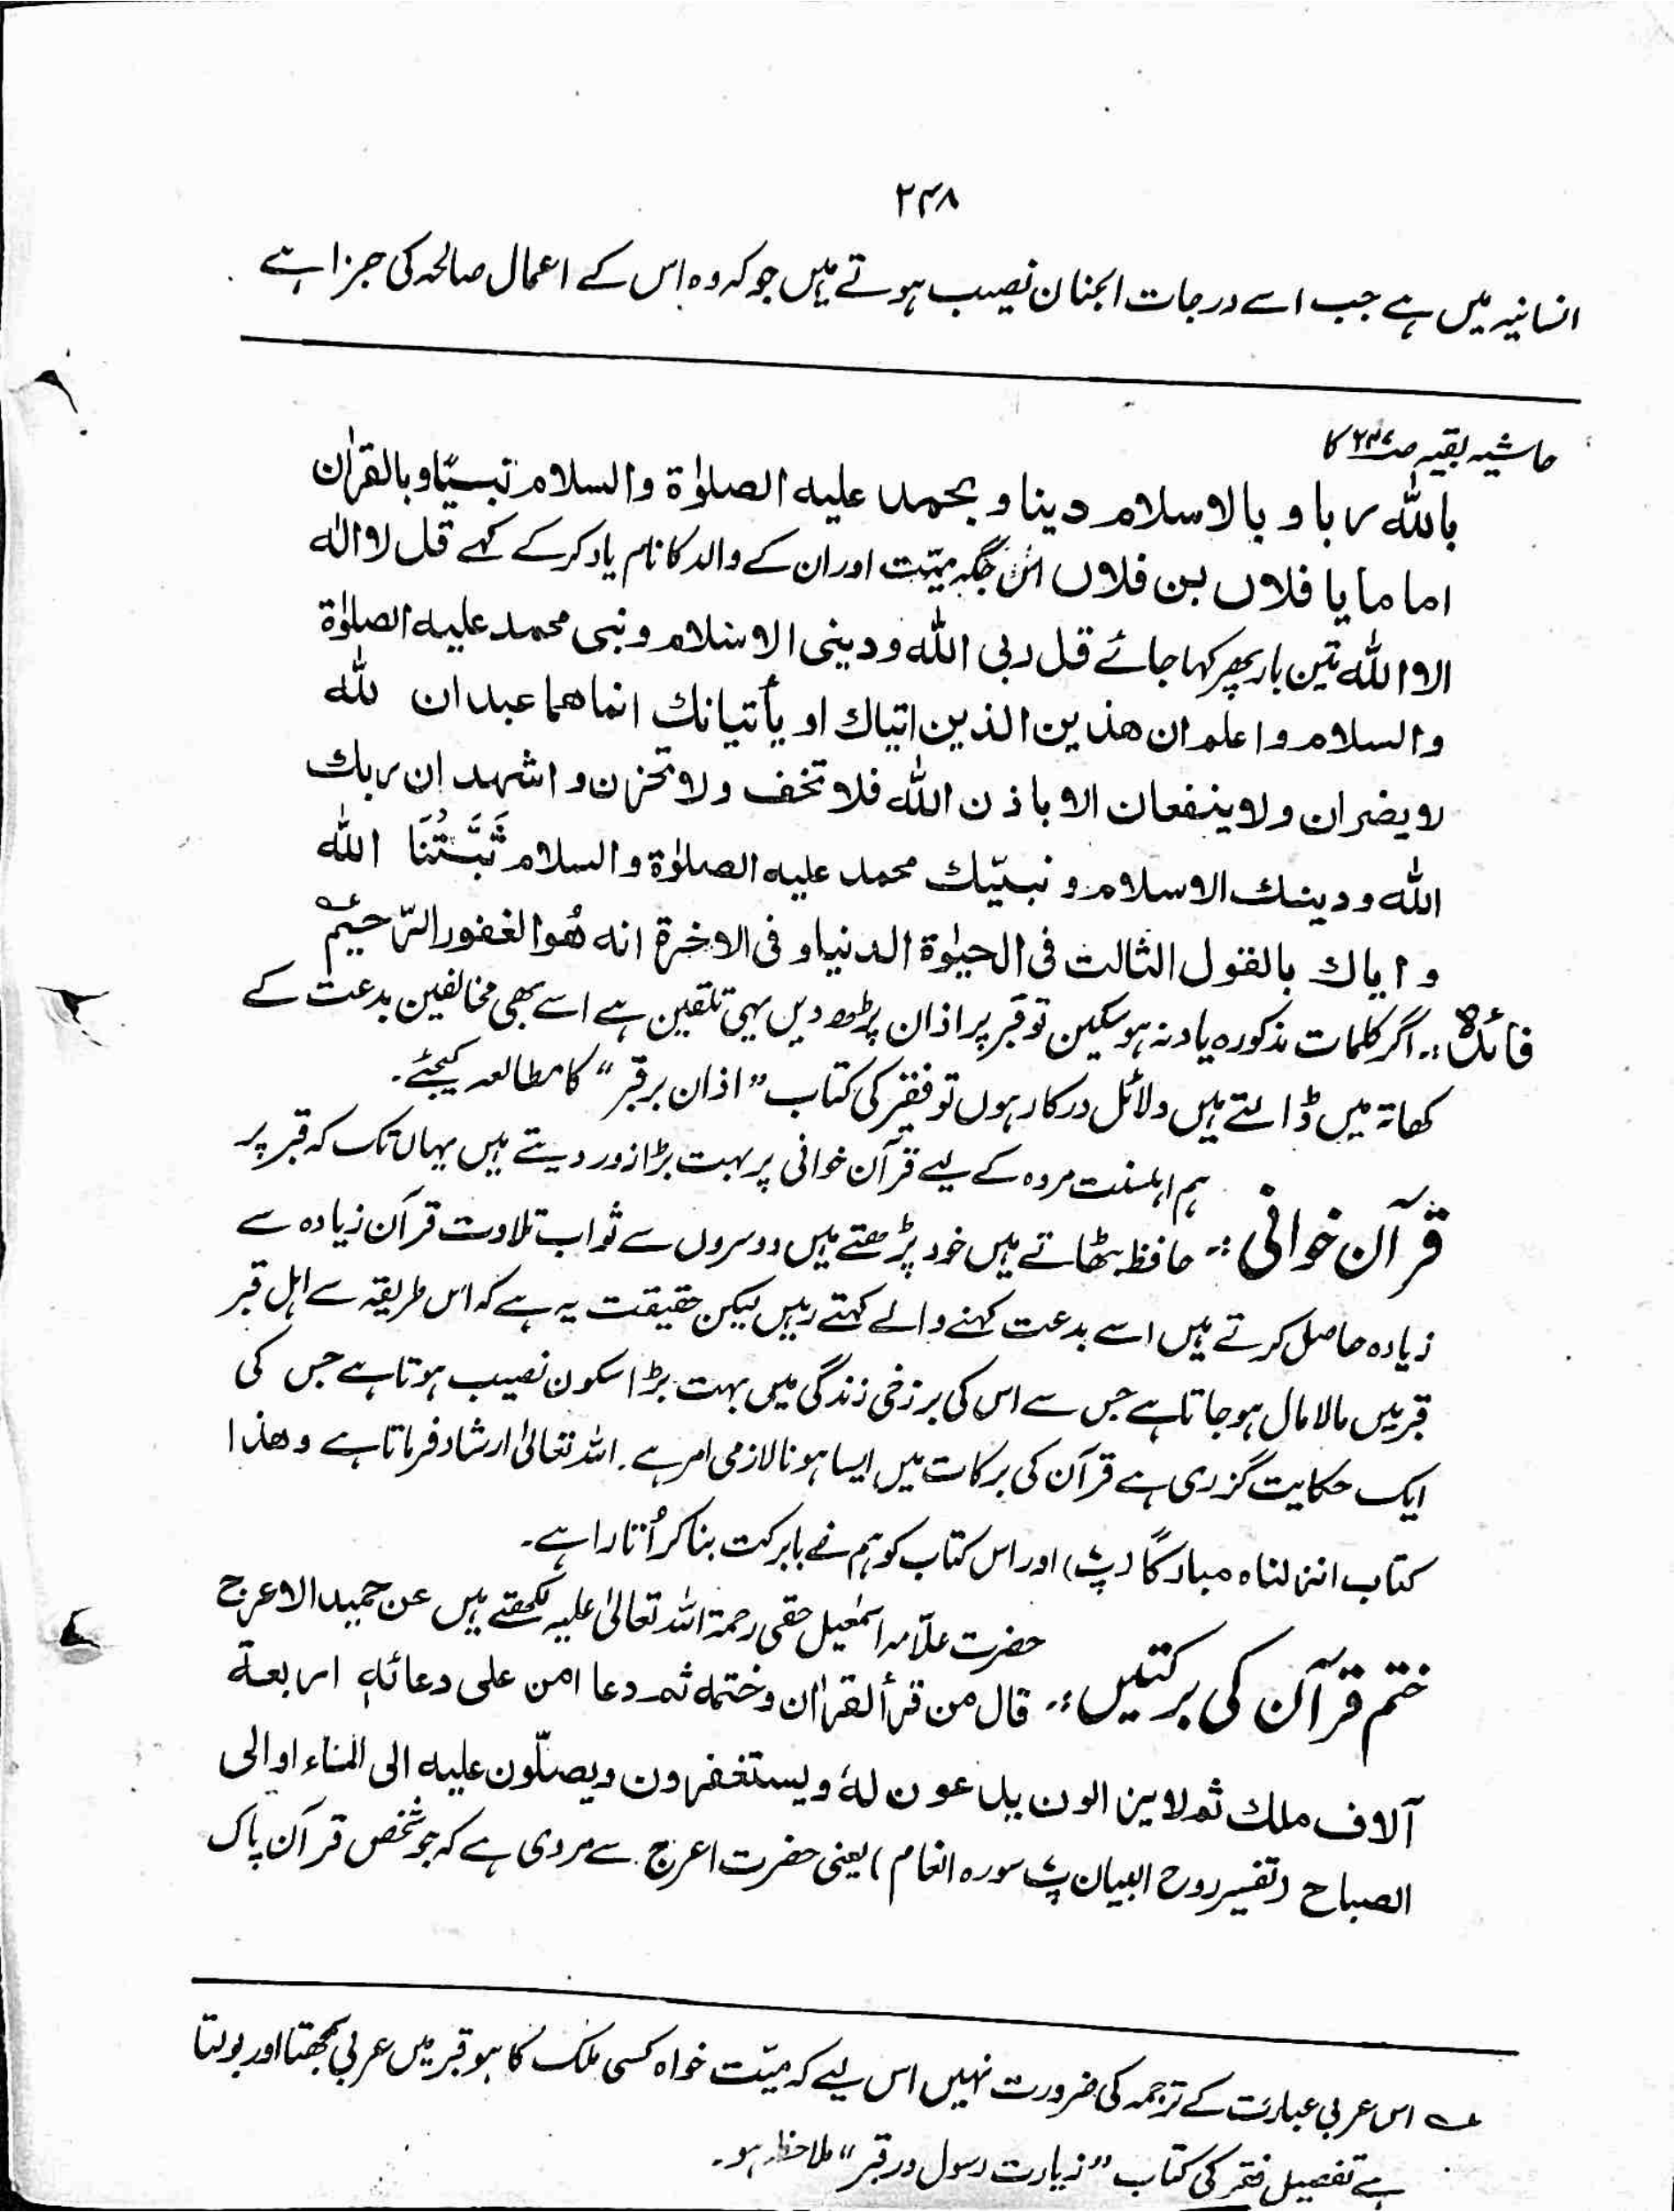 ۲۴۸
انسانیہ میں ہے جب اسے درجات الجنان نصیب ہوتے ہیں جو کہ وہ اس کے اعمال صالحہ کی جزا ہے
حاشیہ بقیہ ص۲۴۷ کا
باللہ ربا و بالاسلام دینا و بحمد علیہ الصلوٰۃ والسلام نبیًّا و بالقراٰن
اماما یا فلاں بن فلاں اس جگہ میّت اور ان کے والد کا نام یاد کر کے کہے قل لا الٰہ
الا اللہ تین بار پھر کہا جائے قل ربی اللہ و دینی الاسلام و نبی محمد علیہ الصلوٰۃ
والسلام واعلم ان ھذین الذین اتیاك او یأتیانك انما ھما عبدان للہ
لا یضران ولا ینفعان الا باذن اللہ فلا تخف ولا تحزن واشہد ان ربك
اللہ و دینك الاسلام و نبیّك محمد علیہ الصلوٰۃ والسلام ثَبَّتُنَا اللہ
وایاك بالقول الثالت فی الحیوٰۃ الدنیا و فی الاخرۃ انہ ھُوالغفورالرّحیْم؎
فائدہ :۔ اگر کلمات مذکورہ یاد نہ ہو سکیں تو قبر پر اذان پڑھ دیں یہی تلقین ہے اسے بھی مخالفین بدعت کے
کھاتہ میں ڈالتے ہیں دلائل درکار ہوں تو فقیر کی کتاب ”اذان بر قبر“ کا مطالعہ کیجئے۔
ہم اہلسنت مردہ کے لیے قرآن خوانی پر بہت بڑا زور دیتے ہیں یہاں تک کہ قبر پر
قرآن خوانی :۔ حافظ بٹھاتے ہیں خود پڑھتے ہیں دوسروں سے ثواب تلاوت قرآن زیادہ سے
زیادہ حاصل کرتے ہیں اسے بدعت کہنے والے کہتے رہیں لیکن حقیقت یہ ہے کہ اس طریقہ سے اہل قبر
قبر میں مالا مال ہو جاتا ہے جس سے اس کی برزخی زندگی میں بہت بڑا سکون نصیب ہوتا ہے جس کی
ایک حکایت گزری ہے قرآن کی برکات میں ایسا ہونا لازمی امر ہے۔ اللہ تعالیٰ ارشاد فرماتا ہے وھذا
کتاب انزلناہ مبارکًا (پ) اور اس کتاب کو ہم نے بابرکت بنا کر اُتارا ہے۔
حضرت علّامہ اسمٰعیل حقی رحمۃ اللہ تعالیٰ علیہ لکھتے ہیں عن حمید الاعرج
ختم قرآن کی برکتیں :۔ قال من قرأ القراٰن وختمہ ثم دعا امن علی دعائہٖ اربعۃ
آلاف ملك ثم لا یزالون یدعون لہٗ ویستغفرون ویصلّون علیہ الی المناء اوالی
الصباح (تفسیر روح البیان پ سورہ انعام) یعنی حضرت اعرج سے مروی ہے کہ جو شخص قرآن پاک
؎ اس عربی عبارت کے ترجمہ کی ضرورت نہیں اس لیے کہ میّت خواہ کسی ملک کا ہو قبر میں عربی سمجھتا اور بولتا
ہے تفصیل فقیر کی کتاب ”زیارت رسول در قبر“ ملاحظہ ہو۔